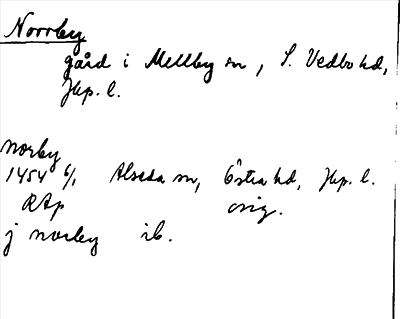 Norrby
gård i Mellby sn, S. Vedbo hd,
Jkp. l.
norby
1454 6/1 Alseda sn, Östra hd, Jkp. l.
RAp orig.
j norby ib.